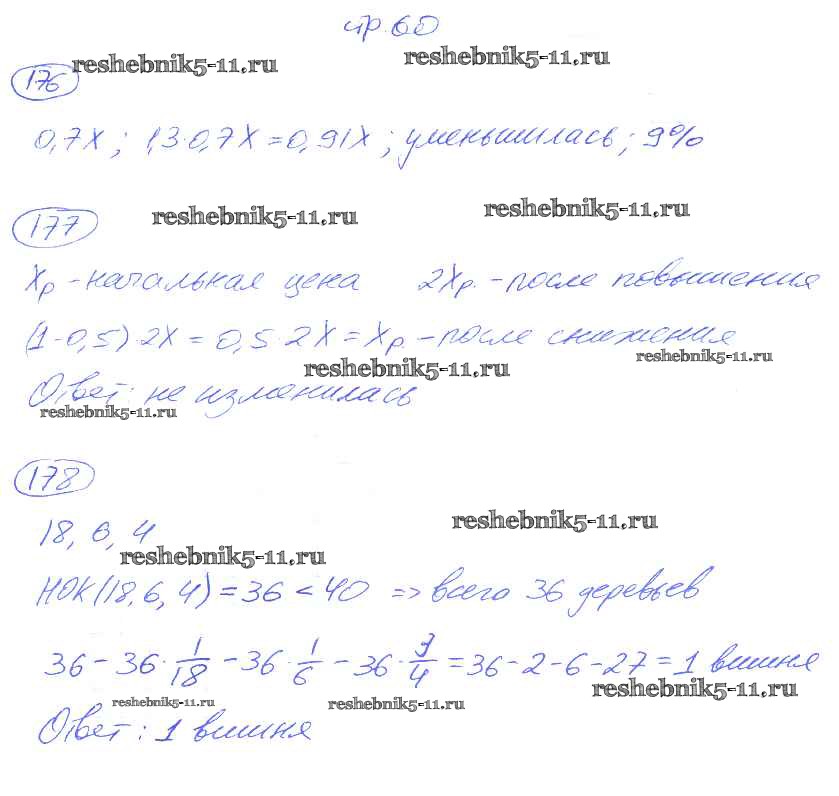 стр. 60
reshebnik5-11.ru reshebnik5-11.ru
176
0,7x; 1,3·0,7x=0,91x; уменьшилась; 9%
177 reshebnik5-11.ru reshebnik5-11.ru
xр - начальная цена 2xр. - после повышения
(1-0,5)·2x = 0,5·2x = xр. - после снижения
reshebnik5-11.ru reshebnik5-11.ru
Ответ: не изменилась
reshebnik5-11.ru
178
18, 6, 4 reshebnik5-11.ru
reshebnik5-11.ru
НОК(18,6,4)=36<40 => всего 36 деревьев
36 - 36·1/18 - 36·1/6 - 36·3/4 = 36-2-6-27 = 1 вишня
reshebnik5-11.ru reshebnik5-11.ru reshebnik5-11.ru
Ответ: 1 вишня